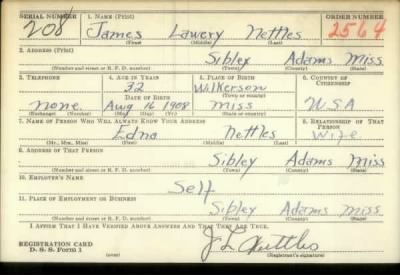 SERIAL NUMBER 1. NAME (Print) ORDER NUMBER
208 James Lawery Nettles 2564
(First) (Middle) (Last)
2. ADDRESS (Print)
Sibley Adams Miss.
(Number and street or R. F. D. number) (Town) (County) (State)
3. TELEPHONE 4. AGE IN YEARS 5. PLACE OF BIRTH 6. COUNTRY OF CITIZENSHIP
32 Wilkerson
DATE OF BIRTH (Town or county)
none. Aug 16 1908 Miss USA
(Exchange) (Number) (Mo.) (Day) (Yr.) (State or country)
7. NAME OF PERSON WHO WILL ALWAYS KNOW YOUR ADDRESS 8. RELATIONSHIP OF THAT PERSON
Edna Nettles Wife
(Mr., Mrs., Miss) (First) (Middle) (Last)
9. ADDRESS OF THAT PERSON
Sibley Adams Miss
(Number and street or R. F. D. number) (Town) (County) (State)
10. EMPLOYER'S NAME
Self
11. PLACE OF EMPLOYMENT OR BUSINESS
Sibley Adams Miss
(Number and street or R. F. D. number) (Town) (County) (State)
I AFFIRM THAT I HAVE VERIFIED ABOVE ANSWERS AND THAT THEY ARE TRUE.
REGISTRATION CARD
D. S. S. Form 1 (over) (Registrant's signature)
J L Nettles